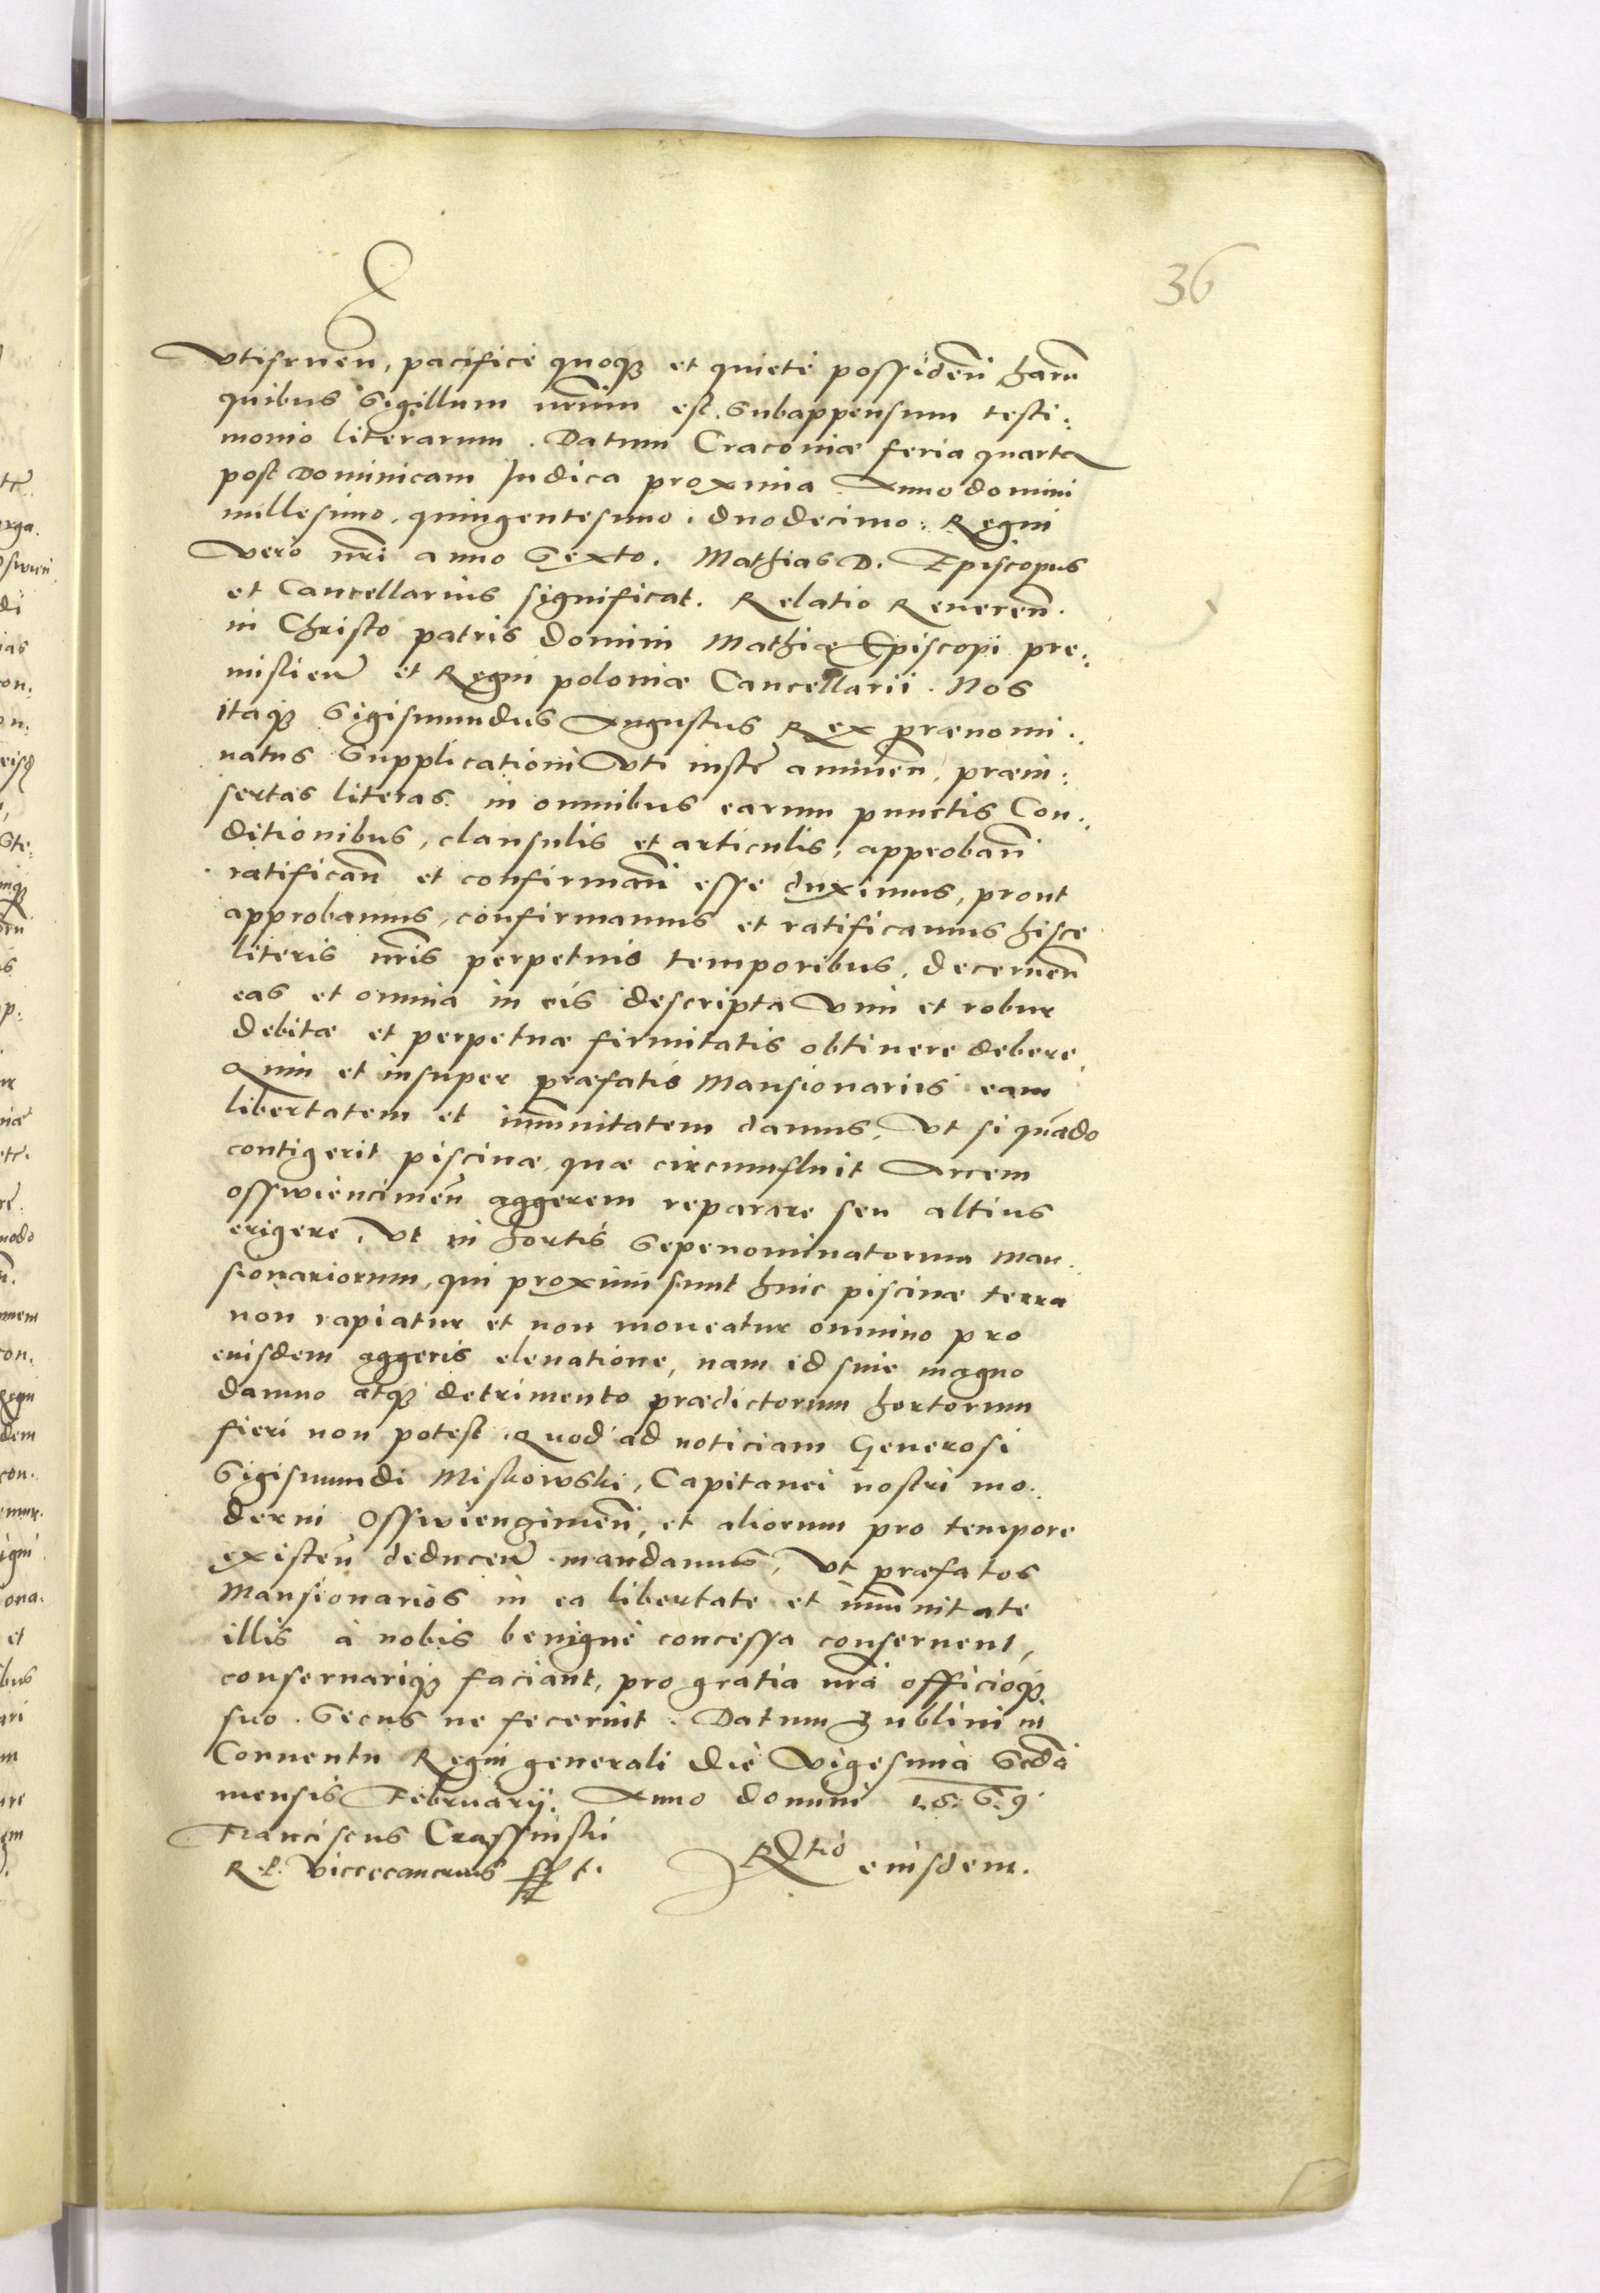 36
Vtifruen, pacificè quoq3 et quietè possiden̄ harū
quibus Sigillum nrūm est. Subappensum testi:
monio literarum. Datum Cracoviæ feria quarta
post Dominicam Judica proxima Anno domini
millesimo, quingentesimo, duodecimo: Regni
Verò nrī anno Sexto. Mathias D. Episcopus
et Cancellarius significat. Relatio Reueren̄.
in Christo patris domini Mathiæ Episcopi pre:
mislien̄ et Regni poloniæ Cancellarii. Nos
itaq3 Sigismundus Augustus Rex prænomi:
natus Supplicationi Vti instæ annuen, præin:
sertas literas in omnibus earum punctis Con:
ditionibus, clausulis et articulis, approban̄
ratifican̄ et confirman̄ esse duximus, prout
approbamus, confirmamus et ratificamus hisce
literis nrīs perpetuis temporibus, decernen̄
eas et omnia in eis descripta Vim et robur
debitæ et perpetuæ firmitatis obtinere debere.
Quin et insuper præfatis Mansionariis eam
libertatem et im̄unitatem damus, Vt si quādo
contigerit piscinæ, quæ circumfluit Arcem
osswiencimen̄ aggerem reparare seu altius
erigere, Vt in hortis Sepenominatorum Man:
sionariorum, qui proximi sunt huic piscinæ terra
non rapiatur et non moueatur omnino pro
eiusdem aggeris eleuatione, nam id sine magno
damno atq3 detrimento prædictorum hortorum
fieri non potest. Quod ad noticiam Generosi
Sigismundi Miskowski, Capitanei nostri mo:
derni Osswiengimen̄, et aliorum pro tempore
existen̄ deducen̄ mandamus, Vt præfatos
Mansionarios in ea libertate et im̄unitate
illis à nobis benignè concessa conseruent,
conseruariq3 faciant, pro gratia nrā officioq3
suo. Secus ne fecerint. Datum Lublini in
Conuentu Regni generali die Vigesima Secdā
mensis Februarij. Anno domini 1.5.6.9
Franciscus Crassinski
R. P. Vicecancrius sst. Rtio eiusdem.